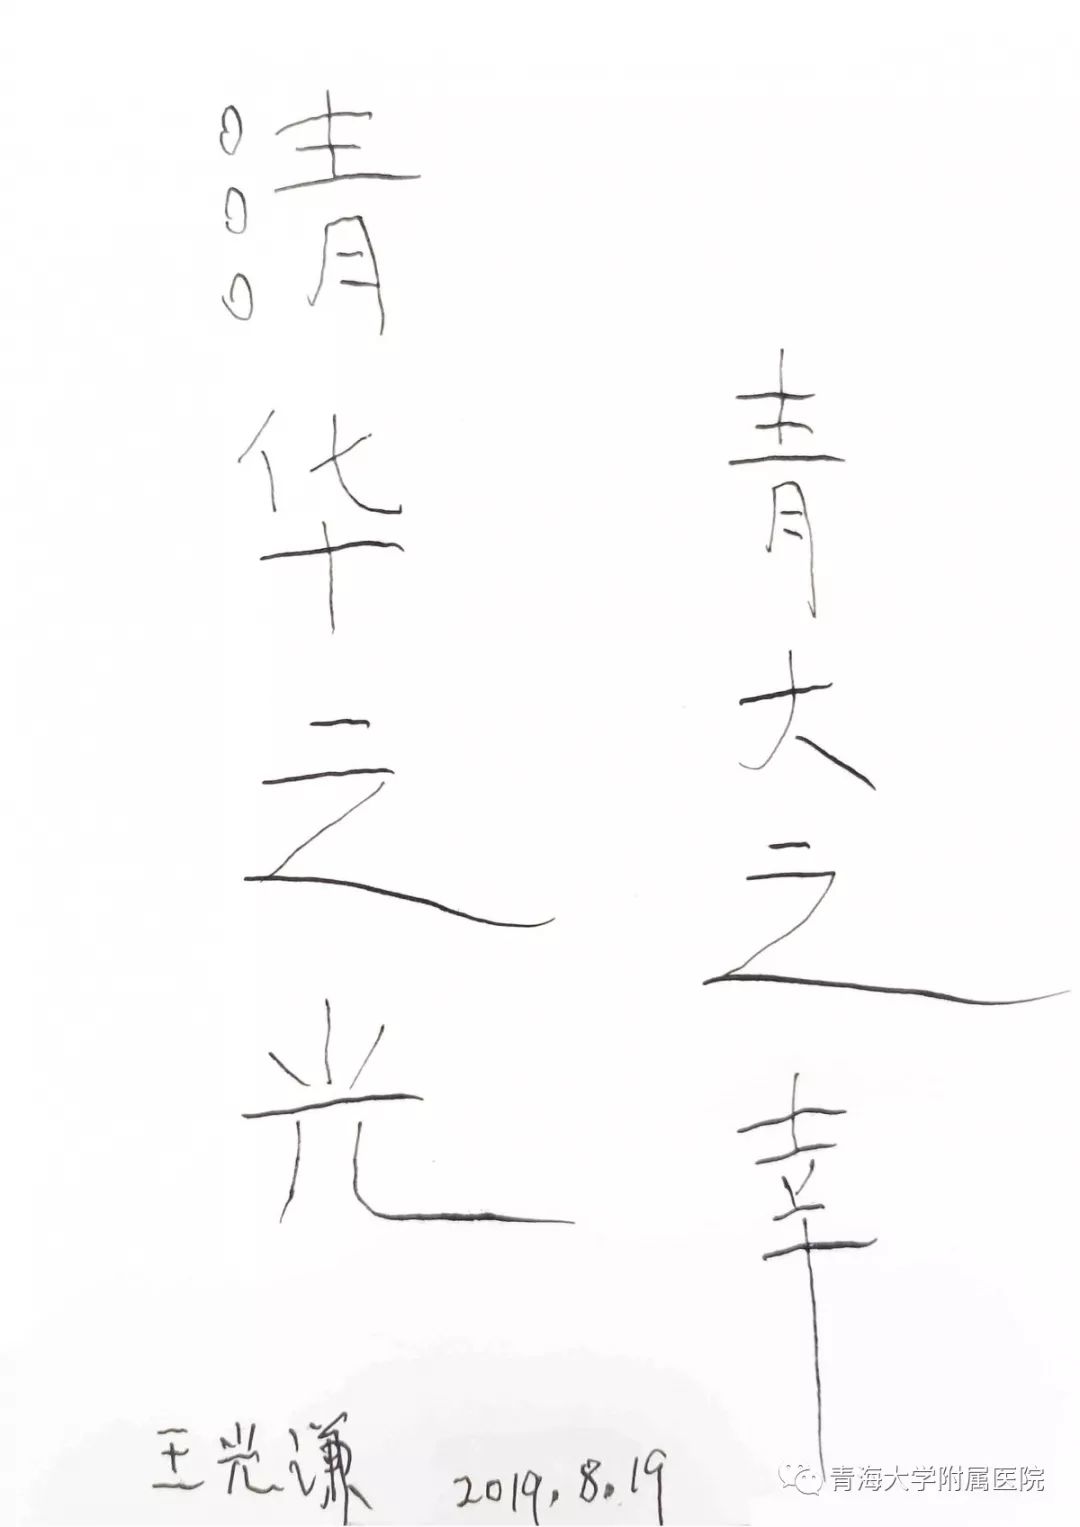 青大之幸
清华之光
王光谦 2019.8.19
青海大学附属医院